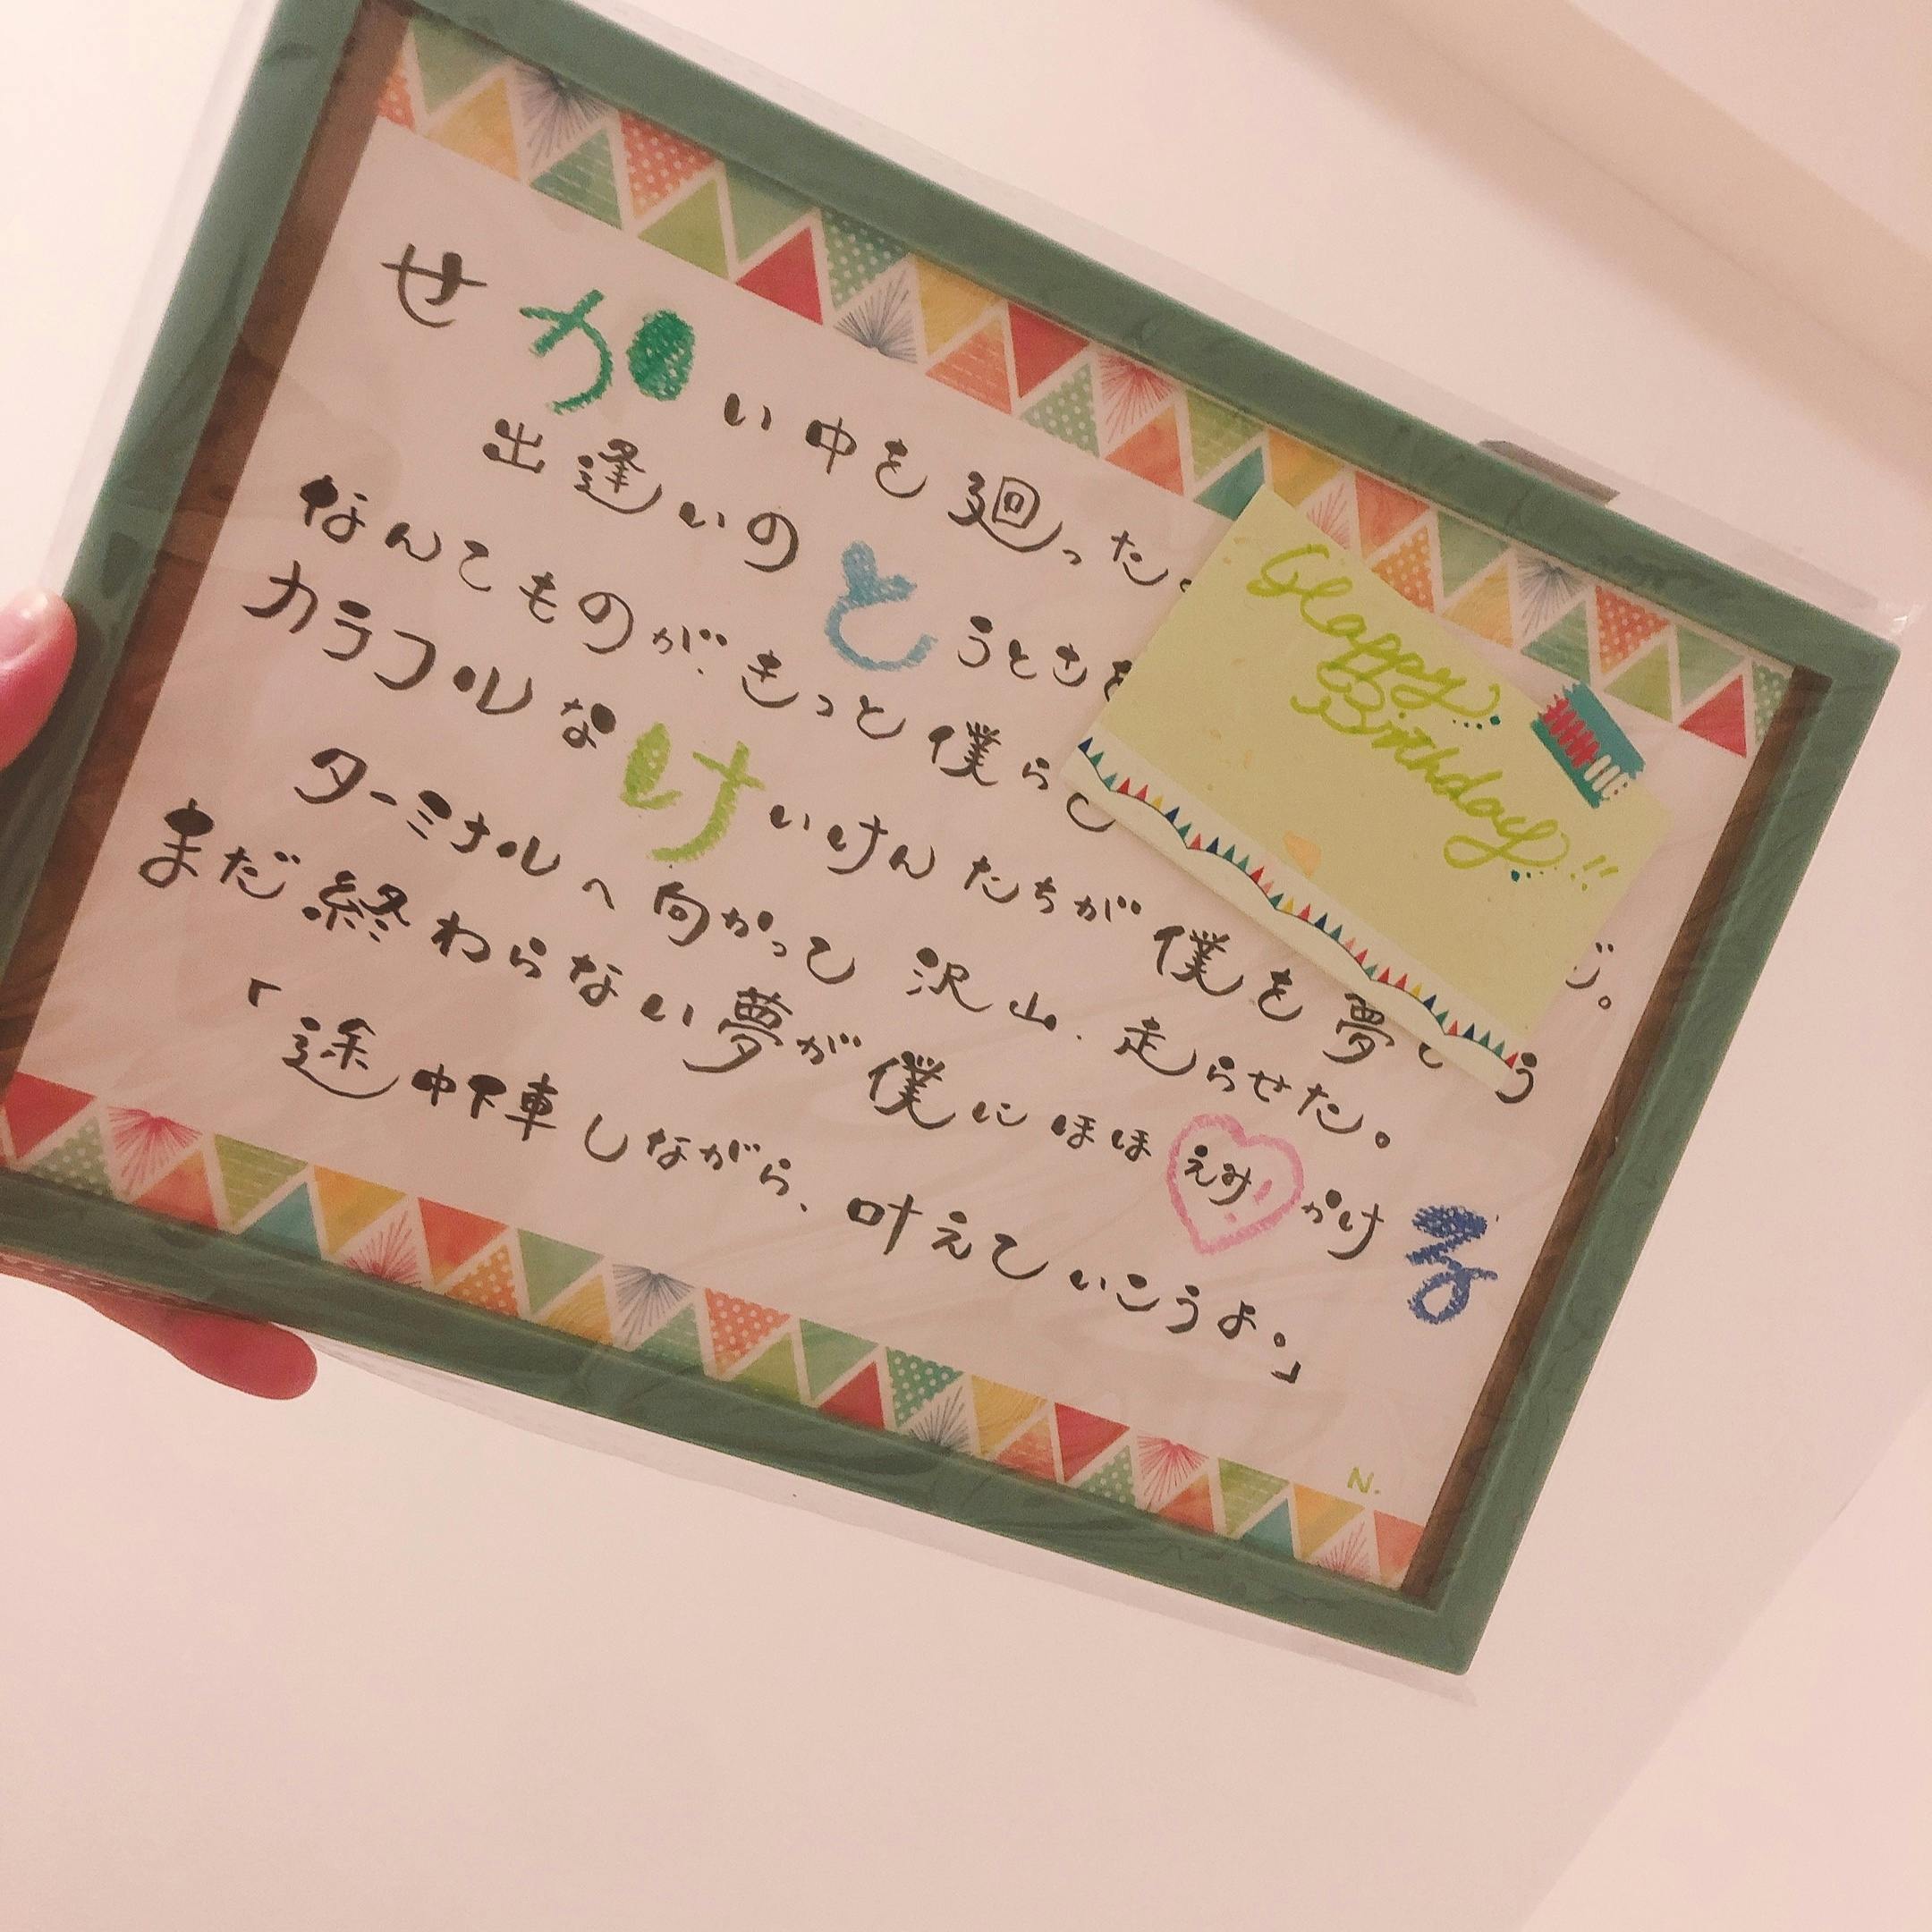 せかい中を廻った。
出逢いのとうとさを
なんてものが、きっと僕らし
カラフルなけいけんたちが僕を夢
ターミナルへ向かって沢山、走らせた。
まだ終わらない夢が僕にほほえみかける
「途中下車しながら、叶えていこうよ。」
N.
Happy
Birthday!!